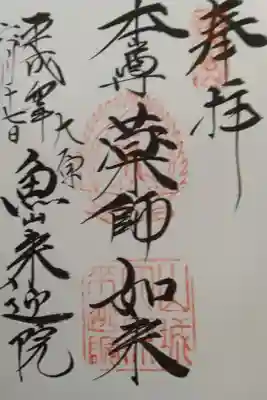 奉拝
本尊 薬師如来
大原
魚山来迎院
平成
十七日
山城